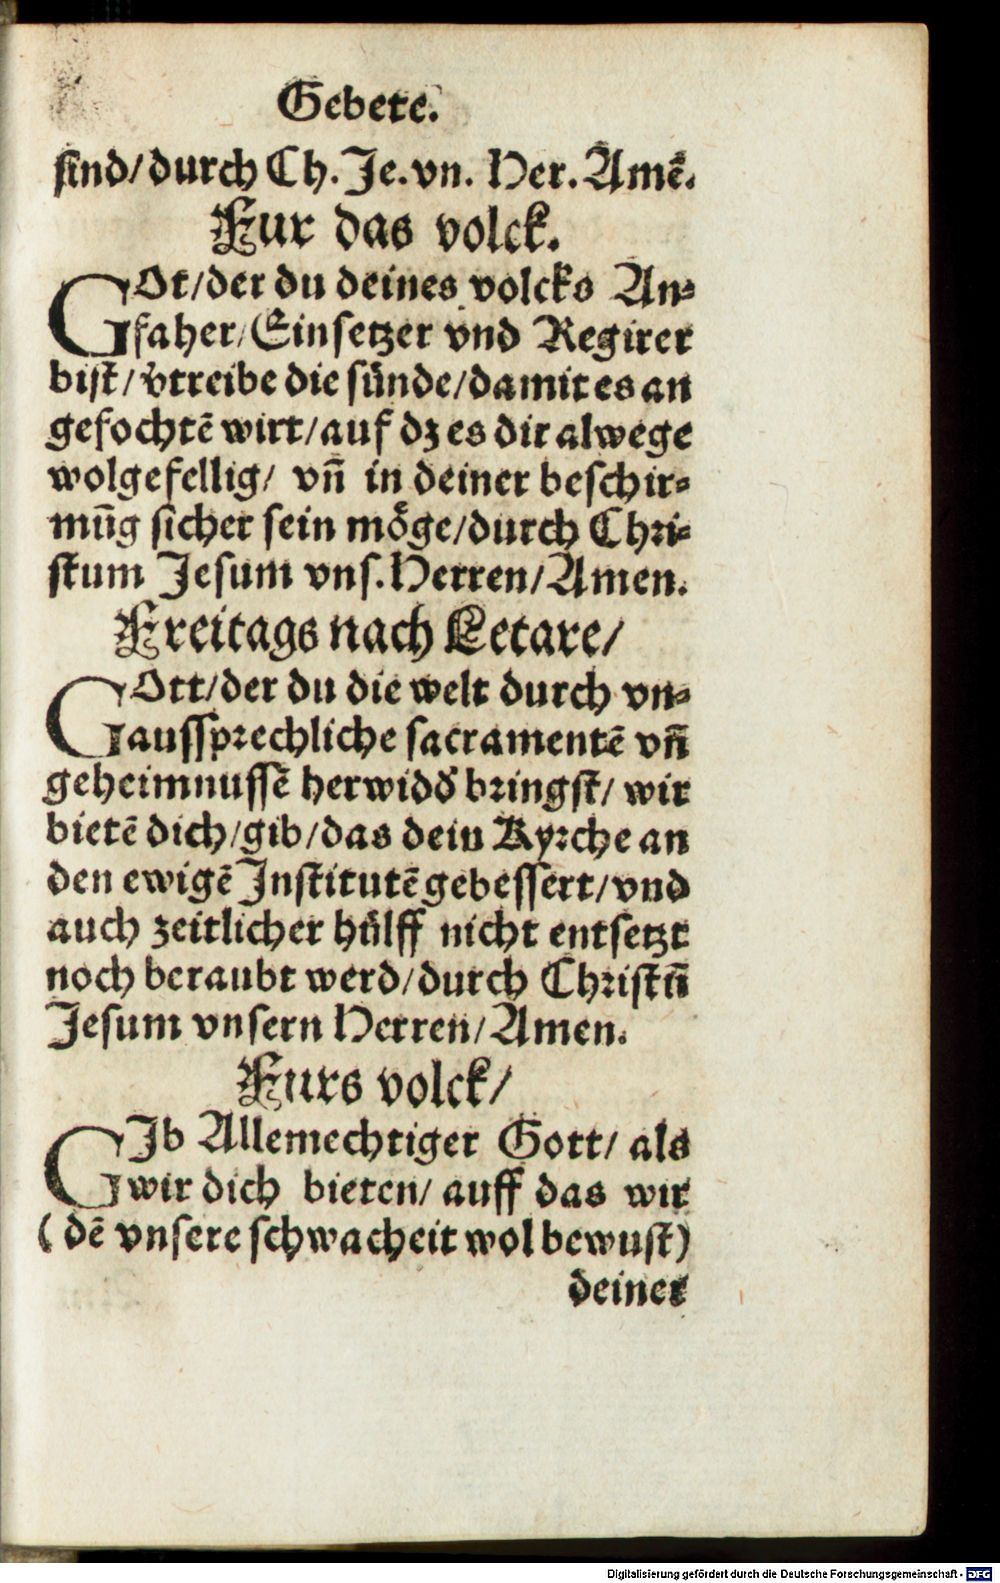 Gebete.
sind/durch Ch. Je. vn. Her. Amē.
Fur das volck.
GOt/der du deines volcks An⸗
faher/Einsetzer vnd Regirer
bist/v̄treibe die sünde/damit es an
gefochtē wirt/auf dz es dir alwege
wolgefellig/ vn̄ in deiner beschir⸗
mūg sicher sein möge/durch Chri⸗
stum Jesum vns. Herren/Amen.
Freitags nach Letare/
GOtt/der du die welt durch vn⸗
aussprechliche sacramentē vn̄
geheimnussē herwidd̄ bringst/ wir
bietē dich/gib/das dein Kyrche an
den ewigē Institutē gebessert/vnd
auch zeitlicher hülff nicht entsetzt
noch beraubt werd/durch Christū
Jesum vnsern Herren/Amen.
Furs volck/
GJb Allemechtiger Gott/ als
wir dich bieten/ auff das wir
(dē vnsere schwacheit wol bewust)
deiner
Digitalisierung gefördert durch die Deutsche Forschungsgemeinschaft - DFG